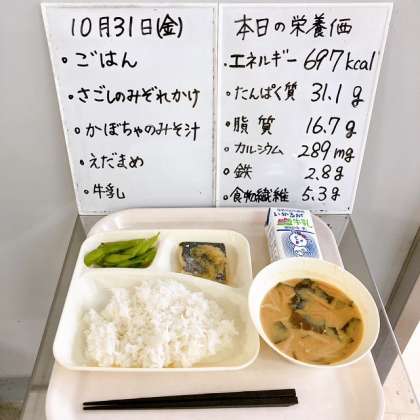 10月31日(金)
・ごはん
・さごしのみぞれかけ
・かぼちゃのみそ汁
・えだまめ
・牛乳
本日の栄養価
・エネルギー 697kcal
・たんぱく質 31.1g
・脂質 16.7g
・カルシウム 289mg
・鉄 2.8g
・食物繊維 5.3g
いかるが
牛乳